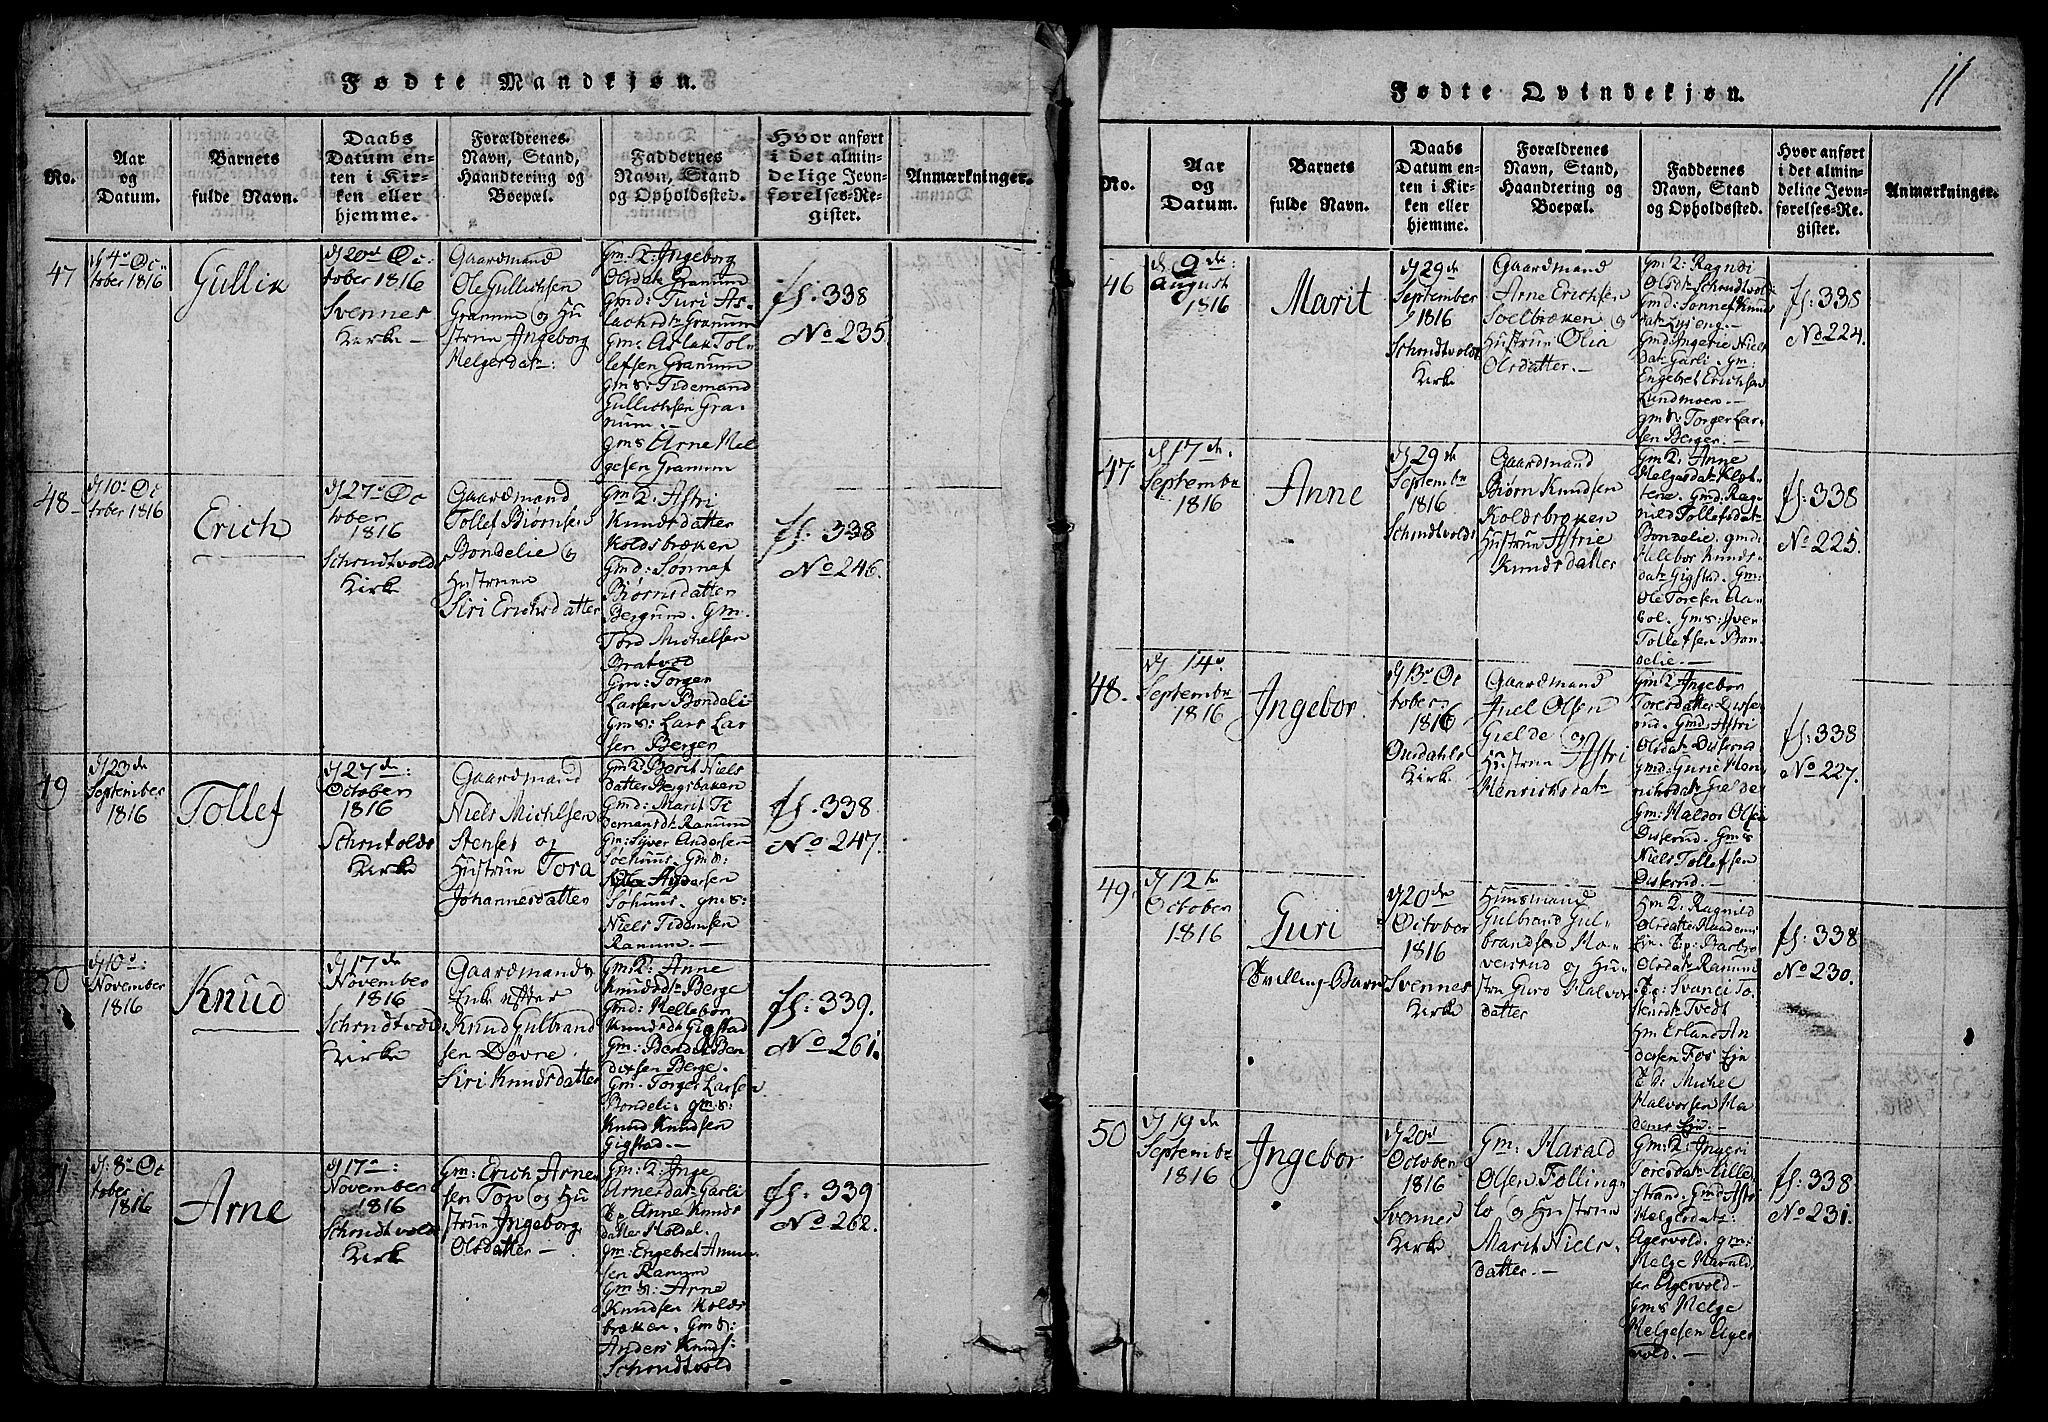 Fødte Mandkjøn.
No.
Aar
og
Datum.
Barnets
fulde Navn.
Daabs
Datum en-
ten i Kir-
ken eller
hjemme.
Forældrenes
Navn, Stand,
Haandtering og
Boepæl.
Faddernes
Navn, Stand
og Opholdssted.
Hvor anført
i det almin-
delige Jevn-
førelses-Re-
gister.
Anmærkninger.
47
d 4de Oc-
tober 1816
Gullik
d 20de Oc-
tober 1816
Svennes
Kirke
Gaardmand
Ole Gullichsen
Granum og Hu
strue Ingeborg
Helgerdatr:
Gm: Q: Ingeborg
Olsdatr Granum
Gmd: Turi As-
lachsdtr Granum
Gm: Aslak Tol-
lefsen Granum
gm S: Tidemand
Gullichsen Gra-
num.
gm S Arne Hel
gesen Granum
fl: 338
No 235
48
d 10de Oc
tober 1816
Erich
d 27de Oc
tober
1816
Schrudtvold
Kirke
Gaardmand
Tollef Biørnsen
Bondelie og
Hustrue
Siri Erichsdatter
Gm Q: Astri
Knudsdatter
Koldsbræken
Gmd: Sønnaf
Biørnsdatter
Bergum. Gm.
Tord Michelsen
Bratvold
Gm: Torger
Larsen Bondeli
Gm S: Lars Lar
sen Bergen
fl: 338
No 246.
49
d 23de
September
1816
Tollef
d 27de:
October
1816
Schrutvolds
Kirke
Gaardmand
Niels Michelsen
Stenset og
Hustrue Tora
Johannesdatter
Gm Q: Berit Niels
datter Bergsbaken
Gmd: Marit Ti
demansdtr Ranum
Gm: Syver Andersen
Søehuus. Gm S:
Andersen
Søhuus. gm S:
Niels Tidemsen
Ranum.
fl: 338.
No 247.
50
d 10de:
November
1816
Knud
d 17de
November
1816
Schrudtvold
Kirke
Gaardmands
Enke efter
Knud Gulbrand
sen Døvre
Siri Knudsdatter
Gm: Q: Anne
Knudsdtr Berge
Gmd: Hellebor
Knudsdtr Gigstad
Gm: Bendik Ben
dixsen Berge.
Gm. Torger Larsen
Bondeli. gm S:
Knud Knudsen
Gigstad.
fl: 339.
No 261.
51
d: 8de Oc
tober
1816
Arne
d 17de:
November
1816
Schrudtvold
Kirke
Gm: Erich Arne
sen Ton og Hu
strue Ingeborg
Olsdatter
Gm: Q: Inge
Arnesdatr Garli
Anne Knuds
datter Holdal.
Gm: Engebret Amun
sen Ranum
Gm S: Arne
Knudsen Kolds
bræken. Gm S:
Anders Knuds:
Schrudtvold
fl: 339
No 262.
11
Fødte Qvindekjøn.
No.
Aar
og
Datum.
Barnets
fulde Navn.
Daabs
Datum en-
ten i Kir-
ken eller
hjemme.
Forældrenes
Navn, Stand,
Haandtering og
Boepæl.
Faddernes
Navn, Stand
og Opholdssted.
Hvor anført
i det almin-
delige Jevn-
førelses-Re-
gister.
Anmærkninger.
46
d 9de:
August
1816
Marit
d 29de
September
1816
Schrudtvolds
Kirke
Gaardmand
Arne Erichsen
Soelbræken og
Hustrue Olia
Olsdatter.
Gm: Q: Ragndi
Olsdtr Schrudtvold
Gmd: Sønnef Knuds
datr Lyseng.
Gmd: Ingerie Niels
datr Garli. Gm:
Engebret Erichsen
Lundmoen.
gm S: Torger Lar-
sen Bergen.
fl: 338
No 224.
47
d 17de.
Septembr
1816
Anne
d 29de
Septembr
1816
Schrudtvolds
Gaardmand
Biørn Knudsen
Koldsbræken
Hustrue Astrie
Knudsdatter
Gm Q: Anne
Helgesdatr Kløt-
terie. Gmd: Rag
nild Tollefsdatr
Bondelie. gmd:
Hellebor Knuds
datr Gigstad. Gm:
Ole Toresen Aa-
bol. Gm S: Iver
Tollefsen Bon
delie.
fl: 338
No 225.
48.
d 14de
Septembr
1816
Ingebor
d 13de Oc
tober
1816
Ourdahls
Kirke
Gaardmand
Juel Olsen
Gielde og
Hustrue Astri
Henrichsdatr
Gm Q: Ingebor
Toresdatter Disse
rud. Gmd: Astri
Olsdatr Disserud
Gmd: Gurie Hen-
richsdatr Gielde
Gm: Haldor Olsen
Disserud. Gm S
Niels Tollefsen
Disserud.
fl: 338
No 227.
49.
d 12te
October
1816
Guri
Tvilling Barn
d 20de
October
1816
Svennes
Kirke
Huusmand
Gulbrand Gul-
brandsen Ho-
verrud og Hu-
stru Guro Halvor
datter
Hm Q: Ragnild
Olsdatter
Ep: Barbro
Olsdatr Ranum
Ep: Svanei To-
Tvedt
Gm Erland An
dersen Fos Eje
Michel
Halvorsen
fl: 338
No 230.
50
d 19de
Septembr
1816
Ingebor
d 20de
October
1816
Svennes
Kirke
Gm: Harald
Olsen Folling-
lo og Hustrue
Marit Niels-
datter.
Gm: Q: Ingeri
Toresdatr Lille
strand. Gmd Astri
Helgesdatr:
Agervold. gm:
Helge Harald
sen Agervold
Gm S Helge
Helgesen Ager
vold.
fl: 338
No 231.